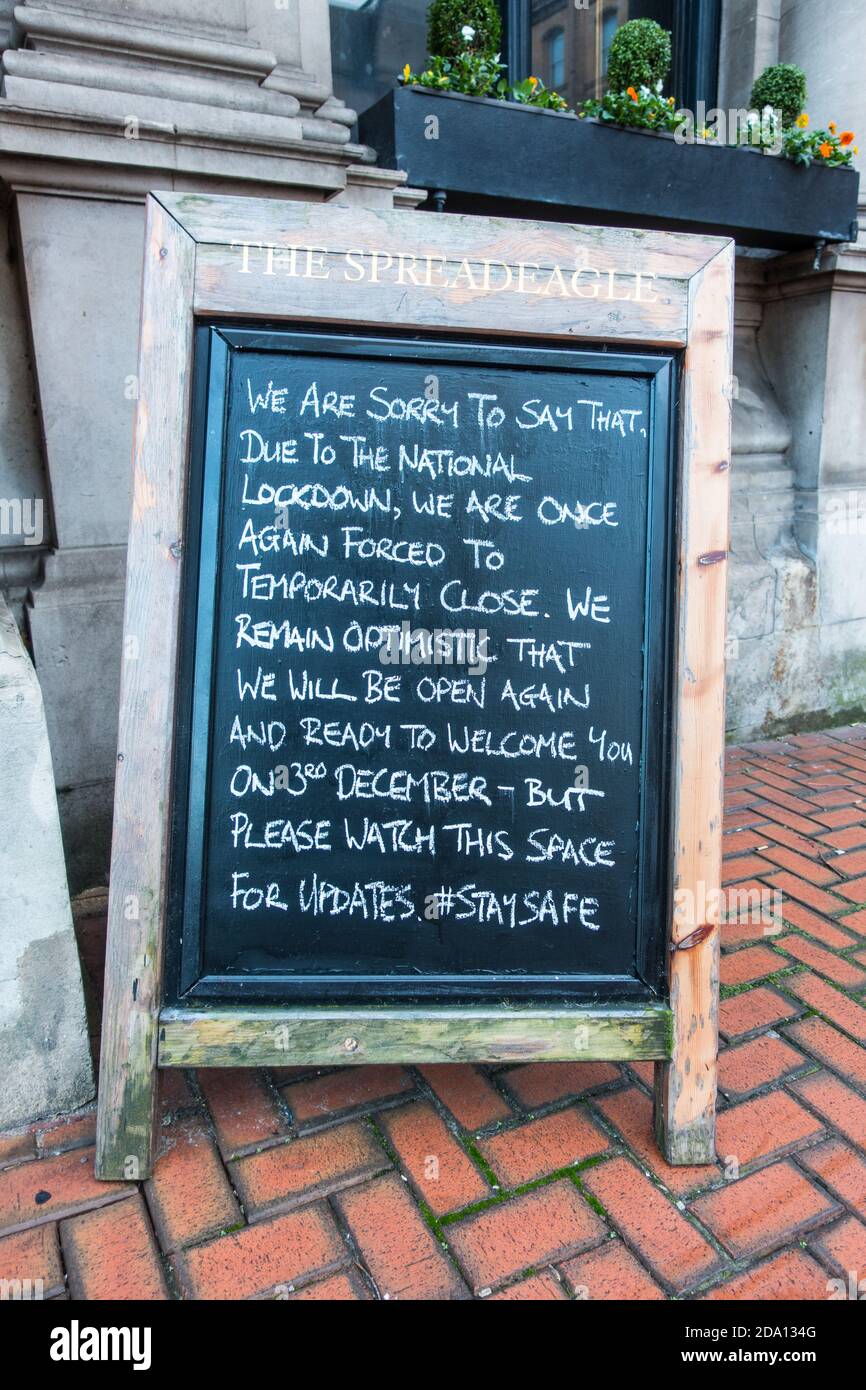 THE SPREADEAGLE
WE ARE SORRY TO SAY THAT,
DUE TO THE NATIONAL
LOCKDOWN, WE ARE ONCE
AGAIN FORCED TO
TEMPORARILY CLOSE. WE
REMAIN OPTIMISTIC THAT
WE WILL BE OPEN AGAIN
AND READY TO WELCOME YOU
ON 3RD DECEMBER - BUT
PLEASE WATCH THIS SPACE
FOR UPDATES. #STAYSAFE
alamy
Image ID: 2DA134G
www.alamy.com